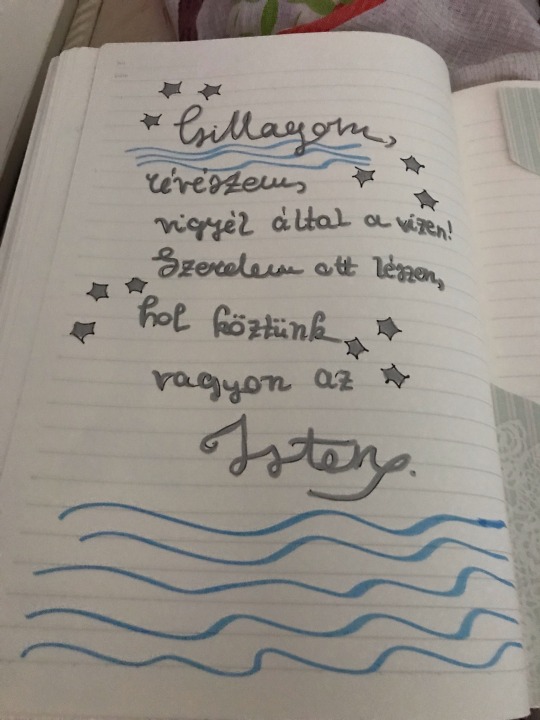 Csillagom,
révészem,
vigyél által a vizen!
Szerelem ott lészen,
hol köztünk
vagyon az
Isten.